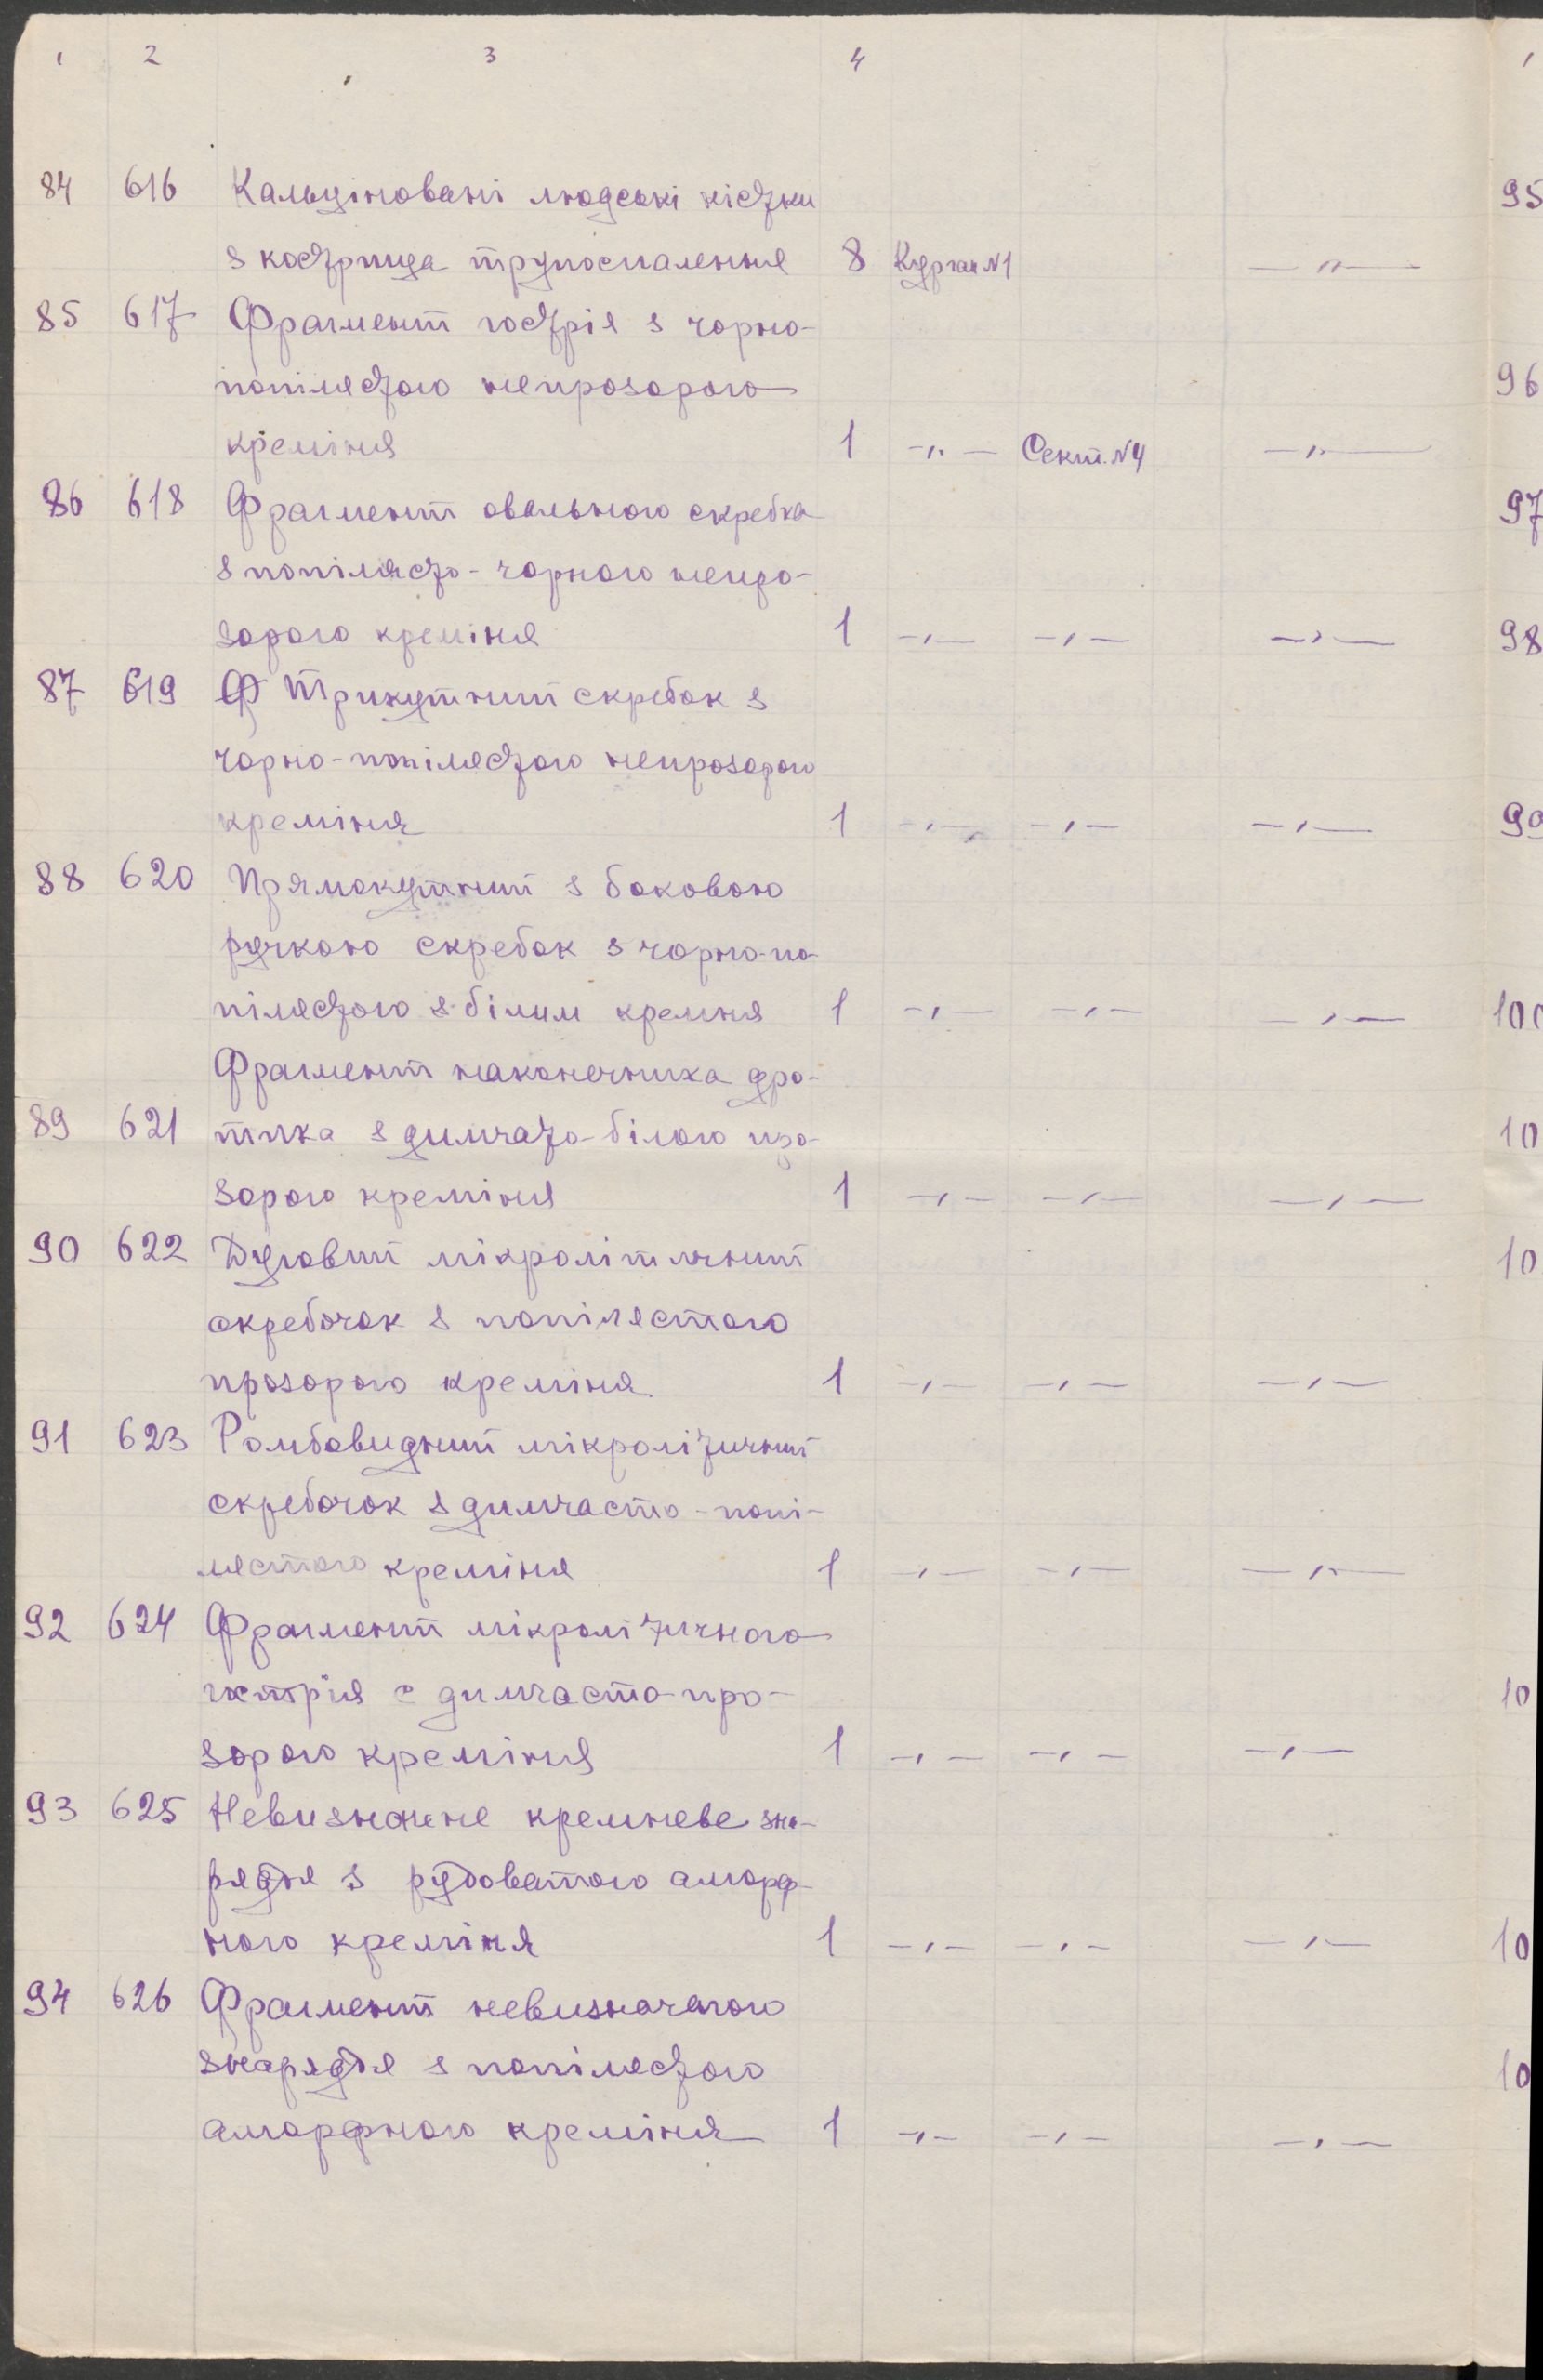 1 2 3 4 1
84 616 Кальціновані людські кістки 95
з кострища трупоспалення 8 Курган №1 —"—
85 617 Фрагмент гострія з чорно-
попілястого непрозорого 96
креміня 1 —"— Сект. №4 —"—
86 618 Фрагмент овального скребка 97
з попілясто-чорного непро-
зорого креміня 1 —"— —"— —"— 98
87 619 Ф Трикутний скребок з
чорно-попілястого непрозорого
креміня 1 —"— —"— —"— 99
88 620 Прямокутний з боковою
ручкою скребок з чорно-по-
пілястого з білим кремня 1 —"— —"— —"— 100
Фрагмент наконечника дро-
89 621 тика з димчато-білого про- 10
зорого креміня 1 —"— —"— —"—
90 622 Дуговий мікролітичний 10
скребочок з попілястого
прозорого креміня 1 —"— —"— —"—
91 623 Ромбовидний мікролітичний
скребочок з димчасто-попі-
лястого креміня 1 —"— —"— —"—
92 624 Фрагмент мікролітичного
гострія с димчасто-про- 10
зорого креміня 1 —"— —"— —"—
93 625 Невизначене кремневе зна-
ряддя з рудоватого аморф-
ного креміня 1 —"— —"— —"— 10
94 626 Фрагмент невизначеного
знаряддя з попілястого 10
аморфного креміня 1 —"— —"— —"—